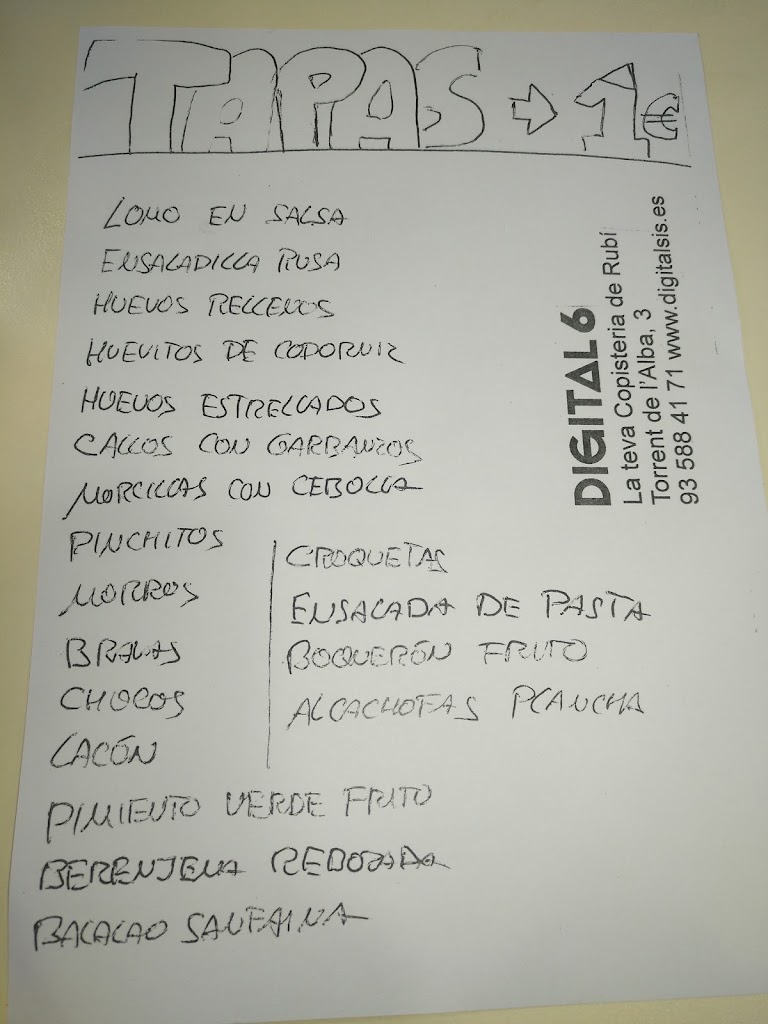 TAPAS → 1€
LOMO EN SALSA
ENSALADILLA RUSA
HUEVOS RELLENOS
HUEVITOS DE CODORNIZ
HUEVOS ESTRELLADOS
CALLOS CON GARBANZOS
MORCILLAS CON CEBOLLA
PINCHITOS
MORROS
BRAVAS
CHOCOS
LACÓN
CROQUETAS
ENSALADA DE PASTA
BOQUERÓN FRITO
ALCACHOFAS PLANCHA
PIMIENTO VERDE FRITO
BERENJENA REBOZADA
BACALAO SANFAINA
DIGITAL 6
La teva Copisteria de Rubí
Torrent de l'Alba, 3
93 588 41 71 www.digitalsis.es